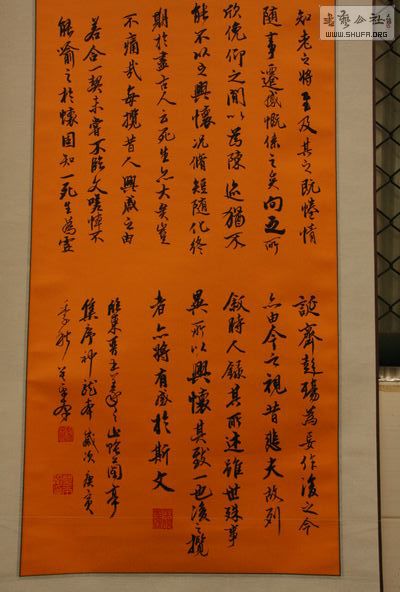 书艺公社
WWW.SHUFA.ORG
知老之将至及其之既惓情
随事遷感慨係之矣向之所
欣俛仰之閒以為陳迹猶不
能不以之興懷况脩短随化終
期於盡古人云死生亦大矣豈
不痛哉每攬昔人興感之由
若合一契未嘗不臨文嗟悼不
能喻之於懷固知一死生為虚
誕齊彭殤為妄作後之今
亦由今之視昔悲夫故列
叙時人録其所述雖世殊事
異所以興懷其致一也後之攬
者亦将有感於斯文
臨東晋王羲之山陰蘭亭
集序神龍本 歲次庚寅
季秋